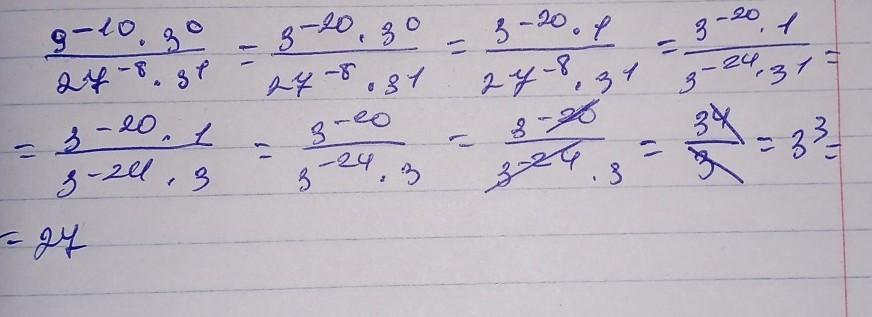 9^-10 · 3^0 / 27^-8 · 3^1 = 3^-20 · 3^0 / 27^-8 · 3^1 = 3^-20 · 1 / 27^-8 · 3^1 = 3^-20 · 1 / 3^-24 · 3^1 =
= 3^-20 · 1 / 3^-24 · 3 = 3^-20 / 3^-24 · 3 = 3^-20 / 3^-24 · 3 = 3^4 / 3 = 3^3 =
= 27